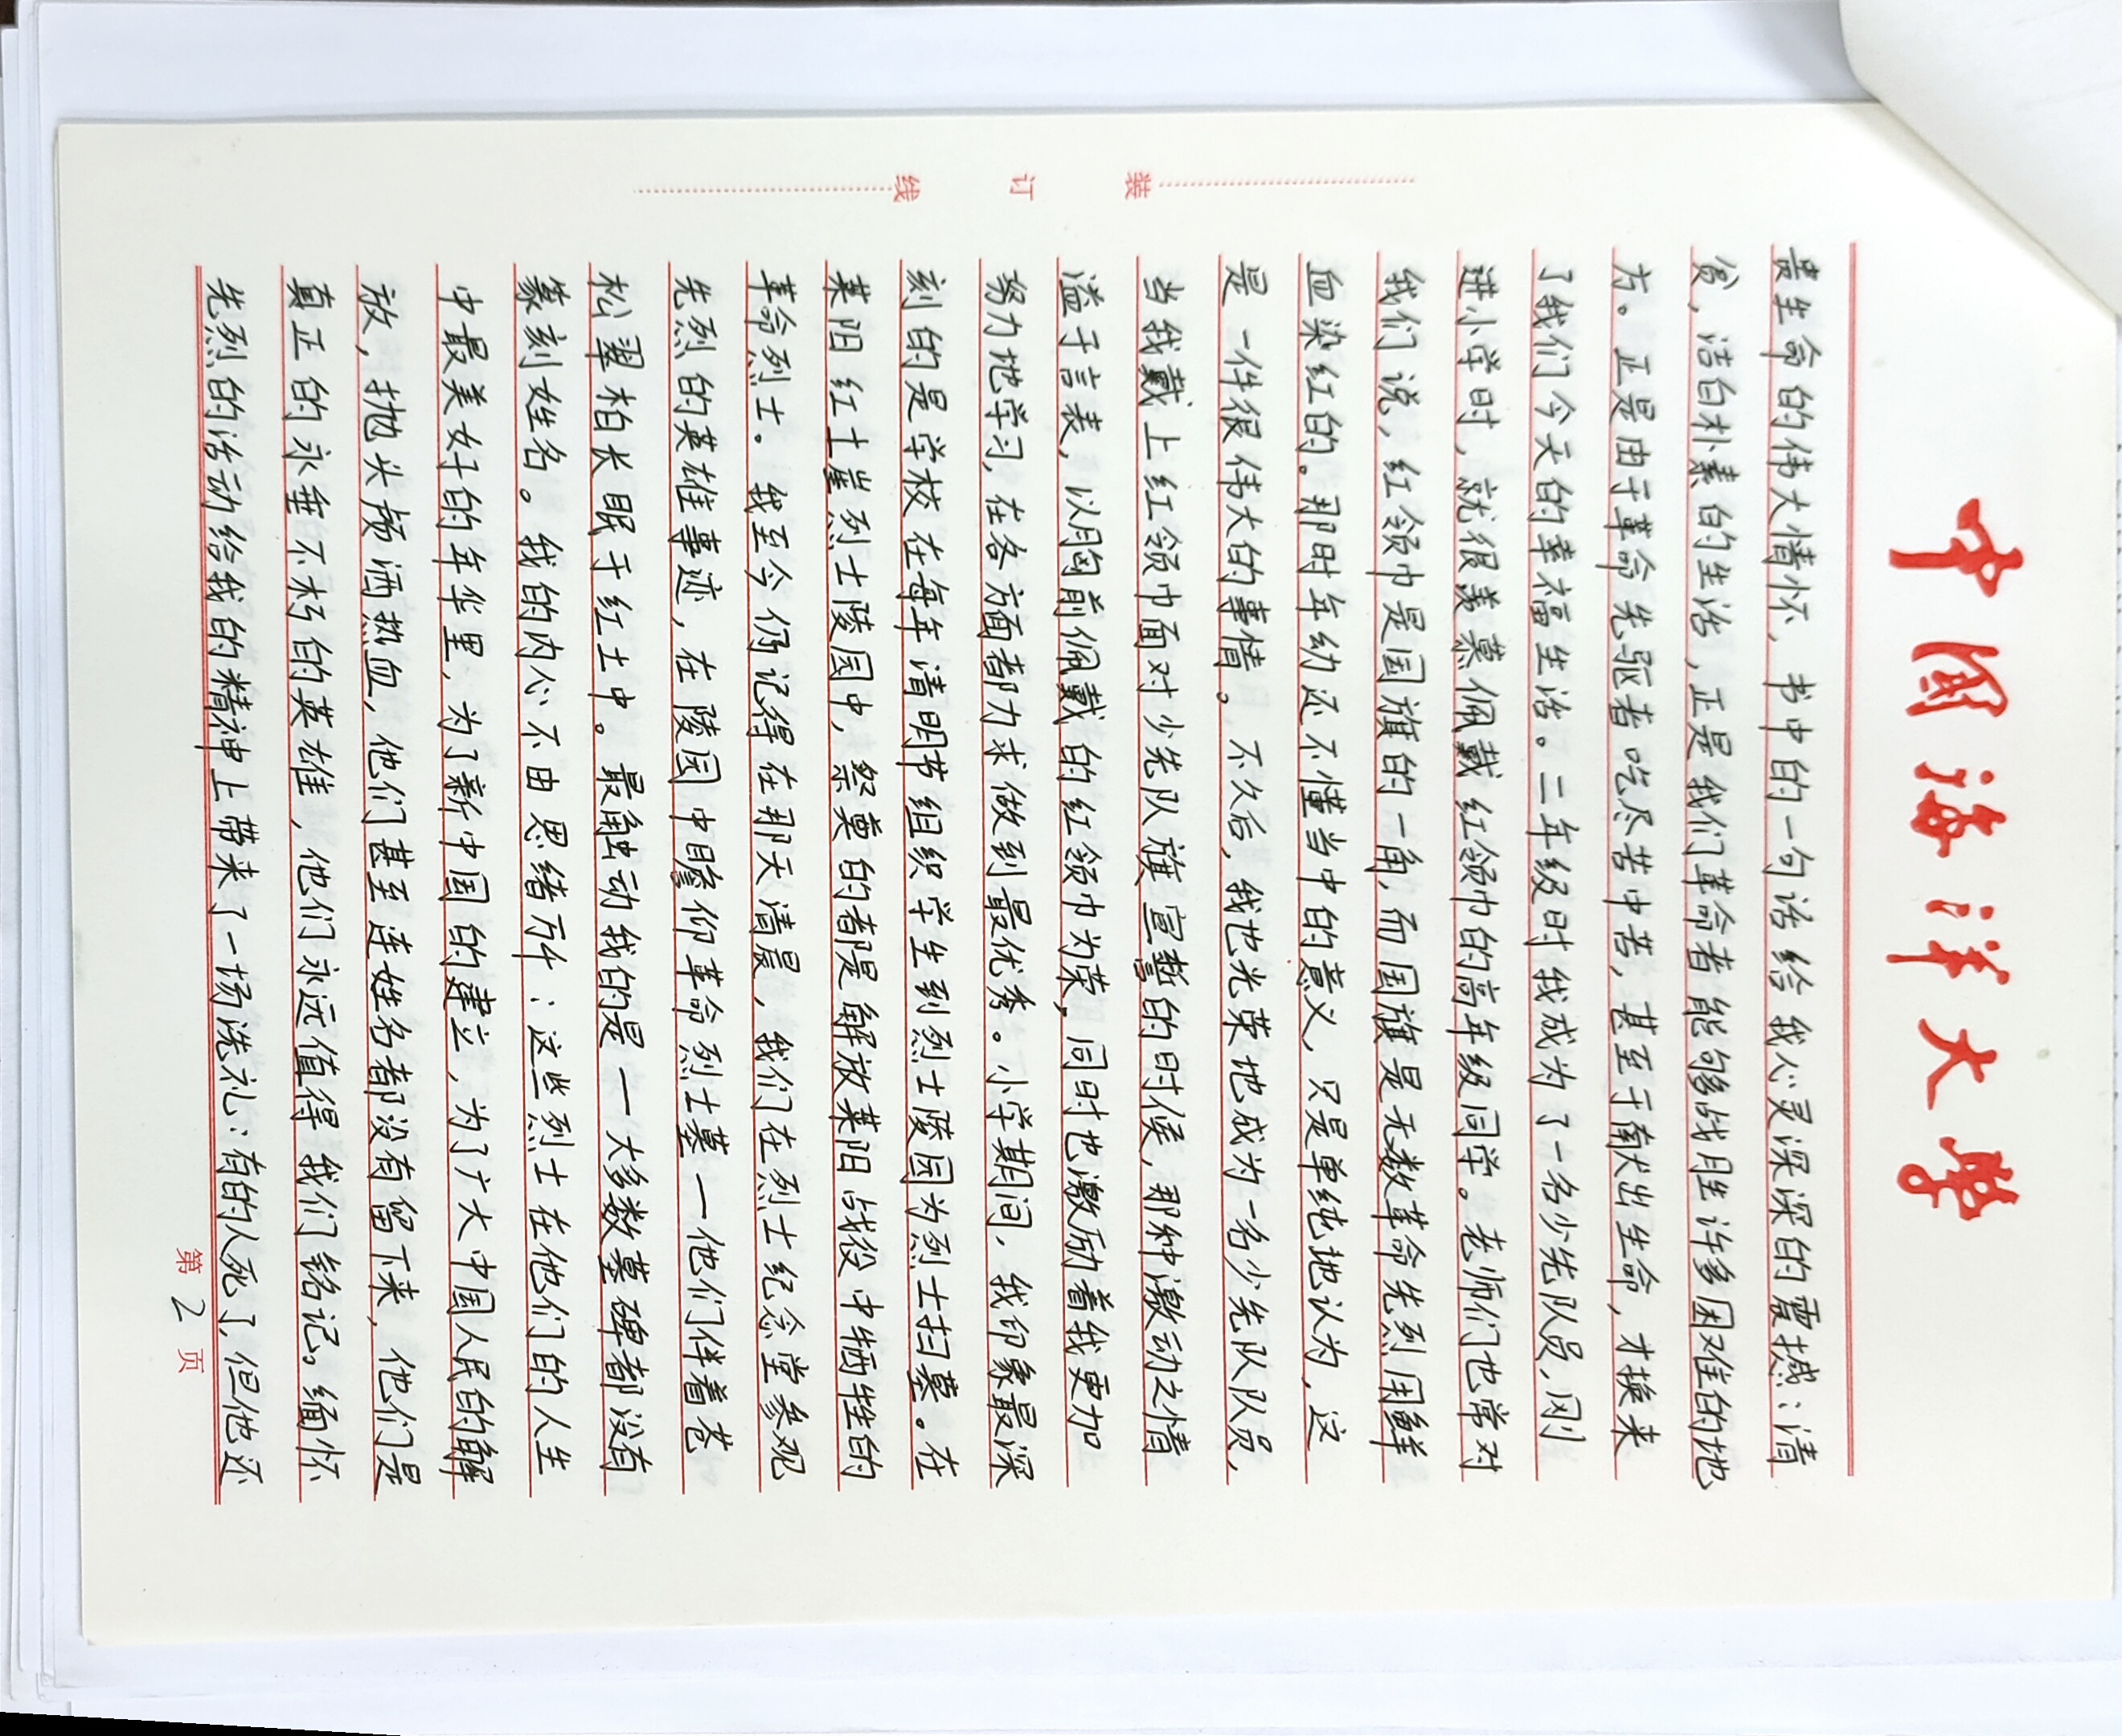 中国海洋大学
贵生命的伟大情怀，书中的一句话给我心灵深深的震撼：清
贫，洁白朴素的生活，正是我们革命者能够战胜许多困难的地
方。正是由于革命先驱者吃尽苦中苦，甚至于献出生命，才换来
了我们今天的幸福生活。二年级时我成为了一名少先队员，刚
进小学时，就很羡慕佩戴红领巾的高年级同学。老师们也常对
我们说，红领巾是国旗的一角，而国旗是无数革命先烈用鲜
血染红的。那时年幼还不懂当中的意义，只是单纯地认为，这
是一件很伟大的事情。不久后，我也光荣地成为一名少先队队员，
当我戴上红领巾面对少先队旗宣誓的时候，那种激动之情
溢于言表，以胸前佩戴的红领巾为荣，同时也激励着我更加
努力地学习，在各方面都力求做到最优秀。小学期间，我印象最深
刻的是学校在每年清明节组织学生到烈士陵园为烈士扫墓。在
莱阳红土崖烈士陵园中，祭奠的都是解放莱阳战役中牺牲的
革命烈士。我至今仍记得在那天清晨，我们在烈士纪念堂参观
先烈的英雄事迹，在陵园中瞻仰革命烈士墓—他们伴着苍
松翠柏长眠于红土中。最触动我的是—大多数墓碑都没有
篆刻姓名。我的内心不由思绪万千：这些烈士在他们的人生
中最美好的年华里，为了新中国的建立，为了广大中国人民的解
放，抛头颅洒热血，他们甚至连姓名都没有留下来，他们是
真正的永垂不朽的英雄，他们永远值得我们铭记。缅怀
先烈的活动给我的精神上带来了一场洗礼：有的人死了，但他还
第2页
装
订
线